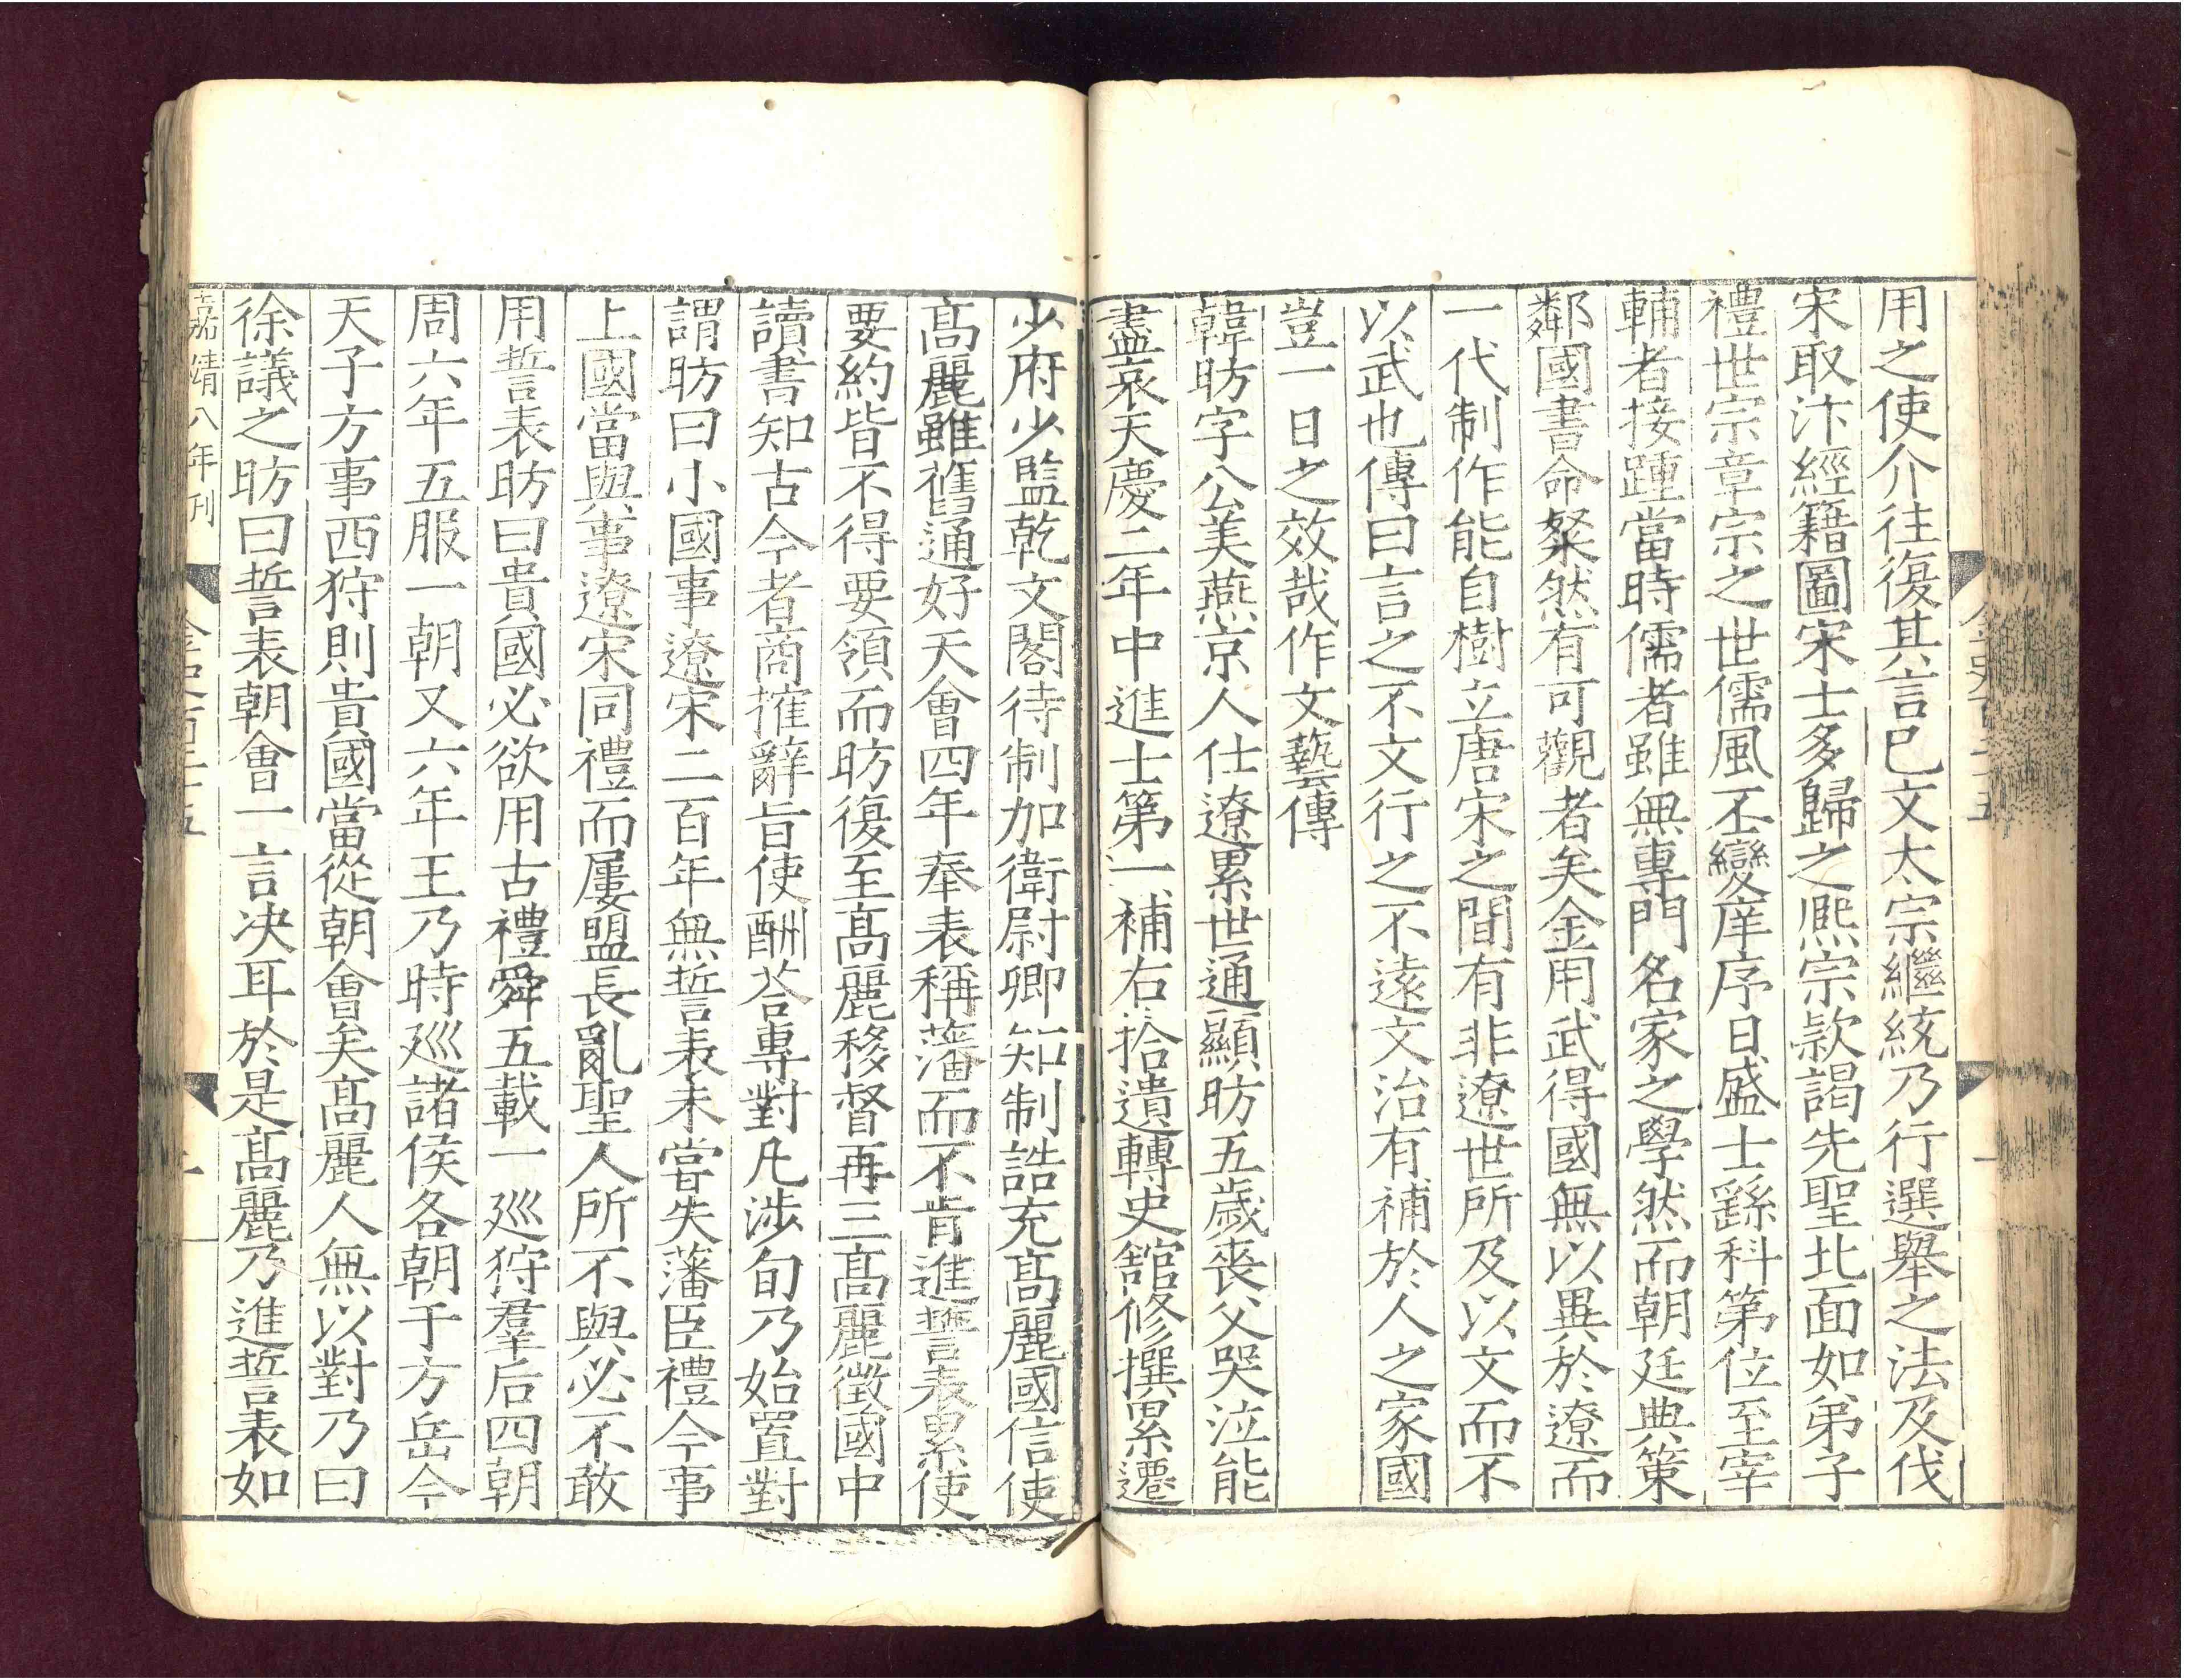 用之使介往復其言已文太宗繼統乃行選舉之法及伐
宋取汴經籍圖宋士多歸之熈宗款謁先聖北面如弟子
禮世宗章宗之世儒風丕變庠序日盛士繇科第位至宰
輔者接踵當時儒者雖無專門名家之學然而朝廷典策
鄰國書命粲然有可觀者矣金用武得國無以異於遼而
一代制作能自樹立唐宋之間有非遼世所及以文而不
以武也傳曰言之不文行之不遠文治有補於人之家國
豈一日之效哉作文藝傳
韓昉字公美燕京人仕遼累世通顯昉五歲喪父哭泣能
盡哀天慶二年中進士第一補右拾遺轉史館修撰累遷
少府少監乾文閣待制加衛尉卿知制誥充髙麗國信使
髙麗雖舊通好天會四年奉表稱藩而不肯進誓表累使
要約皆不得要領而昉復至髙麗移督再三髙麗徵國中
讀書知古今者商搉辭旨使酬荅專對凡涉旬乃始置對
謂昉曰小國事遼宋二百年無誓表未嘗失藩臣禮今事
上國當與事遼宋同禮而屢盟長亂聖人所不與必不敢
用誓表昉曰貴國必欲用古禮舜五載一廵狩羣后四朝
周六年五服一朝又六年王乃時廵諸侯各朝于方岳今
天子方事西狩則貴國當從朝會矣髙麗人無以對乃曰
徐議之昉曰誓表朝會一言决耳於是髙麗乃進誓表如
嘉靖八年刊